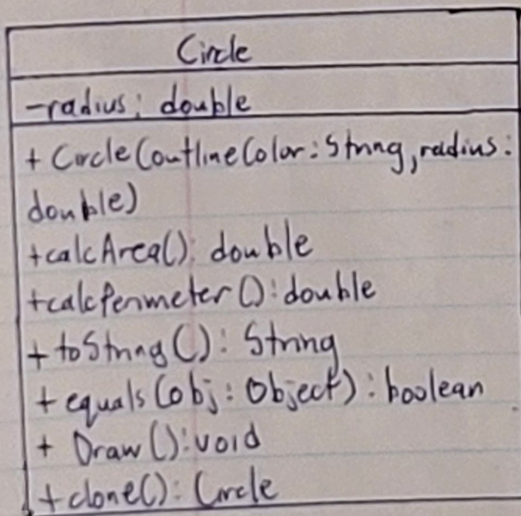 Circle
-radius: double
+ Circle(outlineColor: String, radius:
double)
+calcArea(): double
+calcPerimeter(): double
+ toString(): String
+ equals(obj: Object): boolean
+ Draw(): void
+clone(): Circle